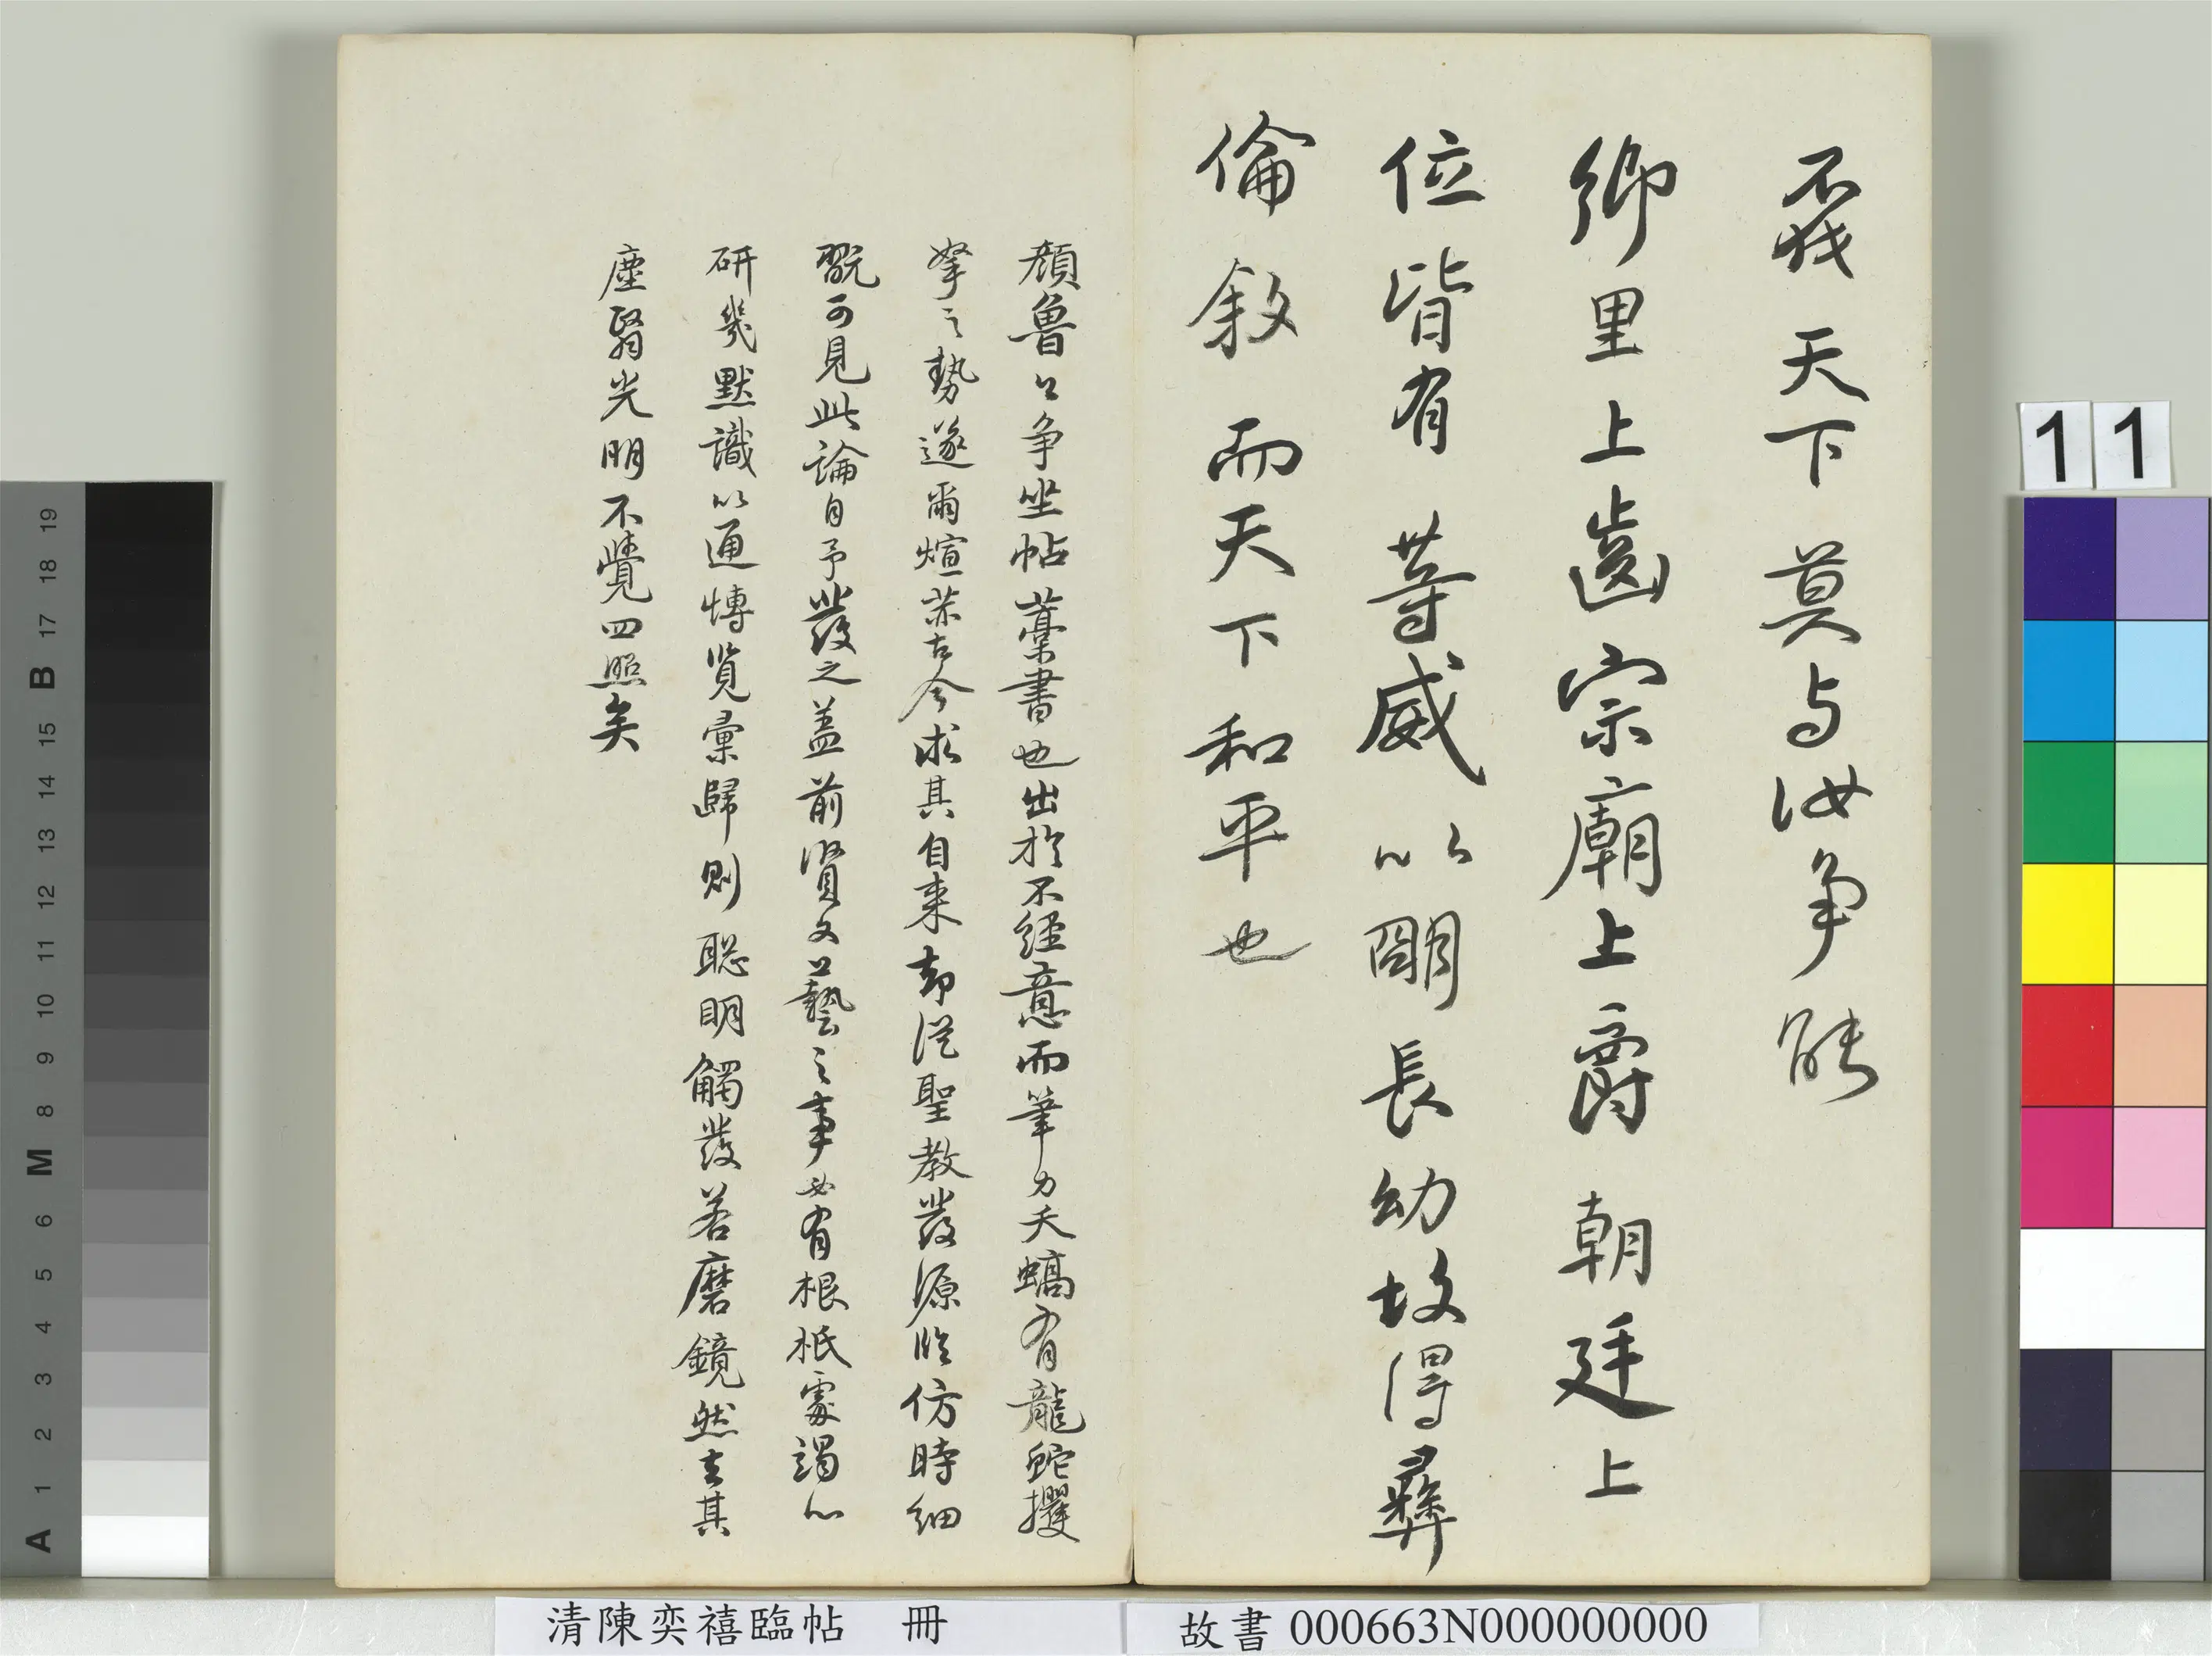 不伐天下莫与汝争能
鄉里上齒宗廟上爵朝廷上
位皆有等威以明長幼故得彝
倫敘而天下和平也
顏魯公争坐帖藁書也出於不經意而筆力夭蟜有龍蛇攫
拏之勢遂爾煊赫古今求其自来却從聖教發源臨仿時細
翫可見此論自予發之盖前賢文人藝之事必有根柢處竭心
研幾默識以通博览彙歸則聡明觸發若磨鏡然去其
塵翳光明不覺四照矣
11
清陳奕禧臨帖 冊
故書 000663N000000000
A 1 2 3 4 5 6 M 8 9 10 11 12 13 14 15 B 17 18 19